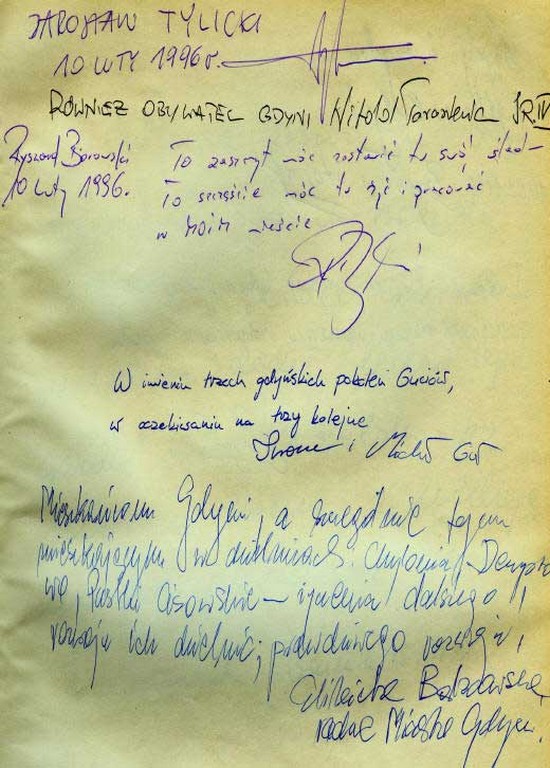 JAROSŁAW TYLICKI
10 LUTY 1996 r.
RÓWNIEŻ OBYWATEL GDYNI Witold
Ryszard Borowski
10 luty 1996.
To zaszczyt móc zostawić tu swój ślad –
To szczęście móc tu żyć i pracować
w MOIM mieście
W imieniu trzech gdyńskich pokoleń Guciów,
w oczekiwaniu na trzy kolejne
Iwona i Michał Guć
Mieszkańcom Gdyni, a szczególnie tym
mieszkającym w dzielnicach: Chylonia, Demptowo
wo, Pustki Cisowskie – życzenia dalszego
rozwoju ich dzielnic; prawdziwego rozwoju,
Elżbieta
radna Miasta Gdyni.